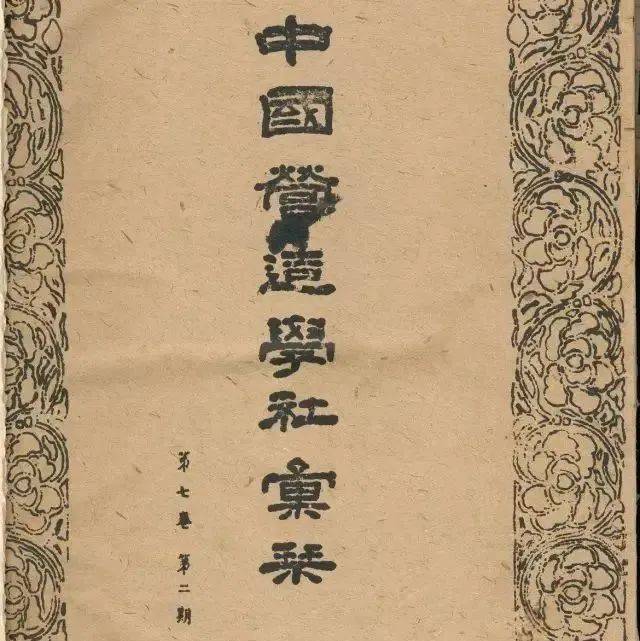 中國營造學社彙栞
第七卷 第二期